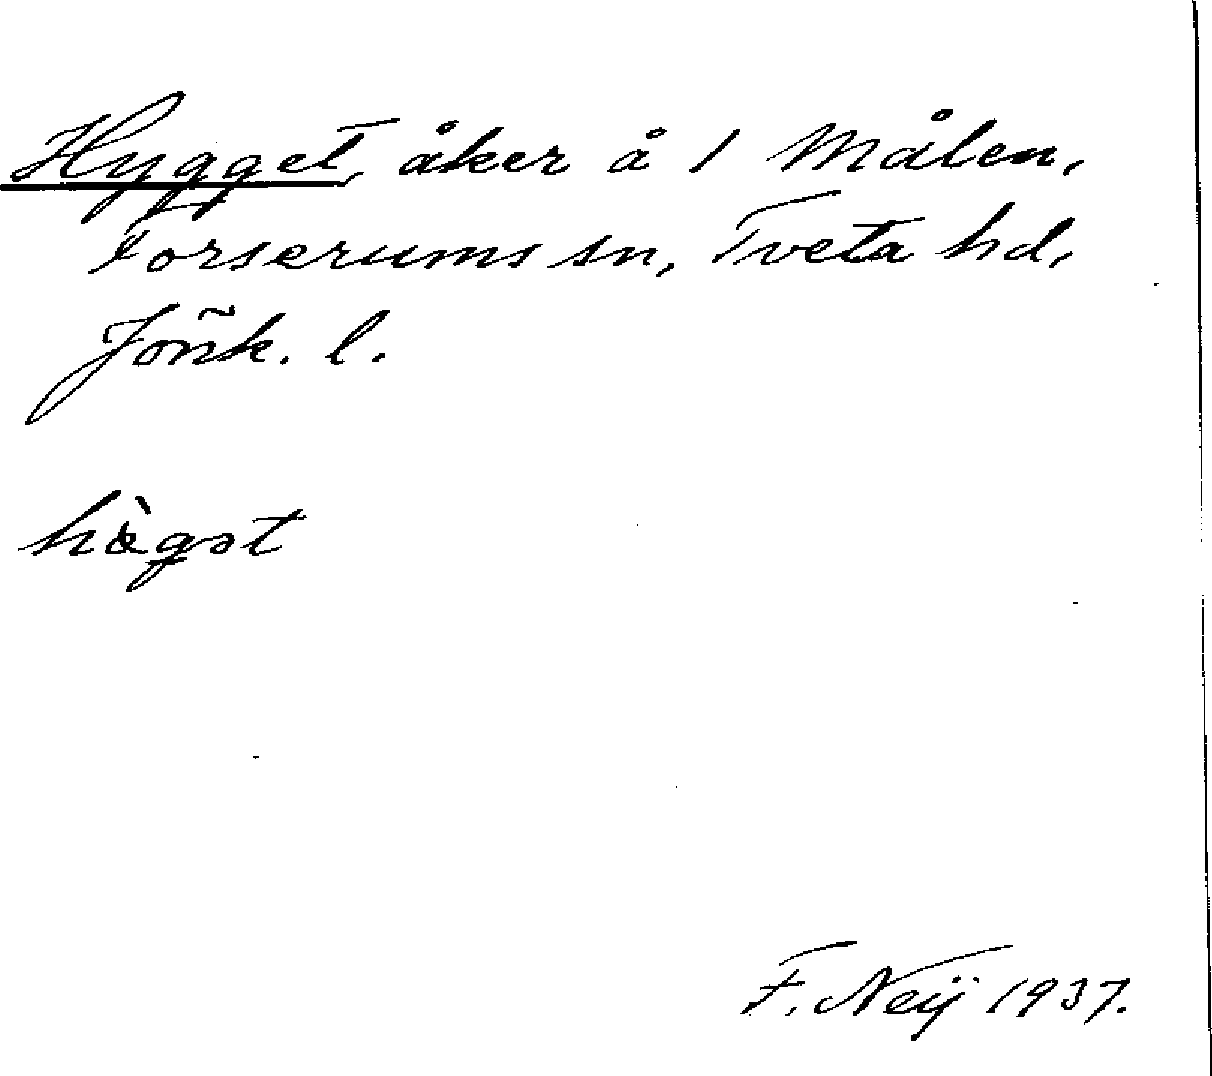 Hygget, åker å 1 Målen,
Forserums sn, Tveta hd,
Jönk. l.
hàgət
F. Neij 1937.